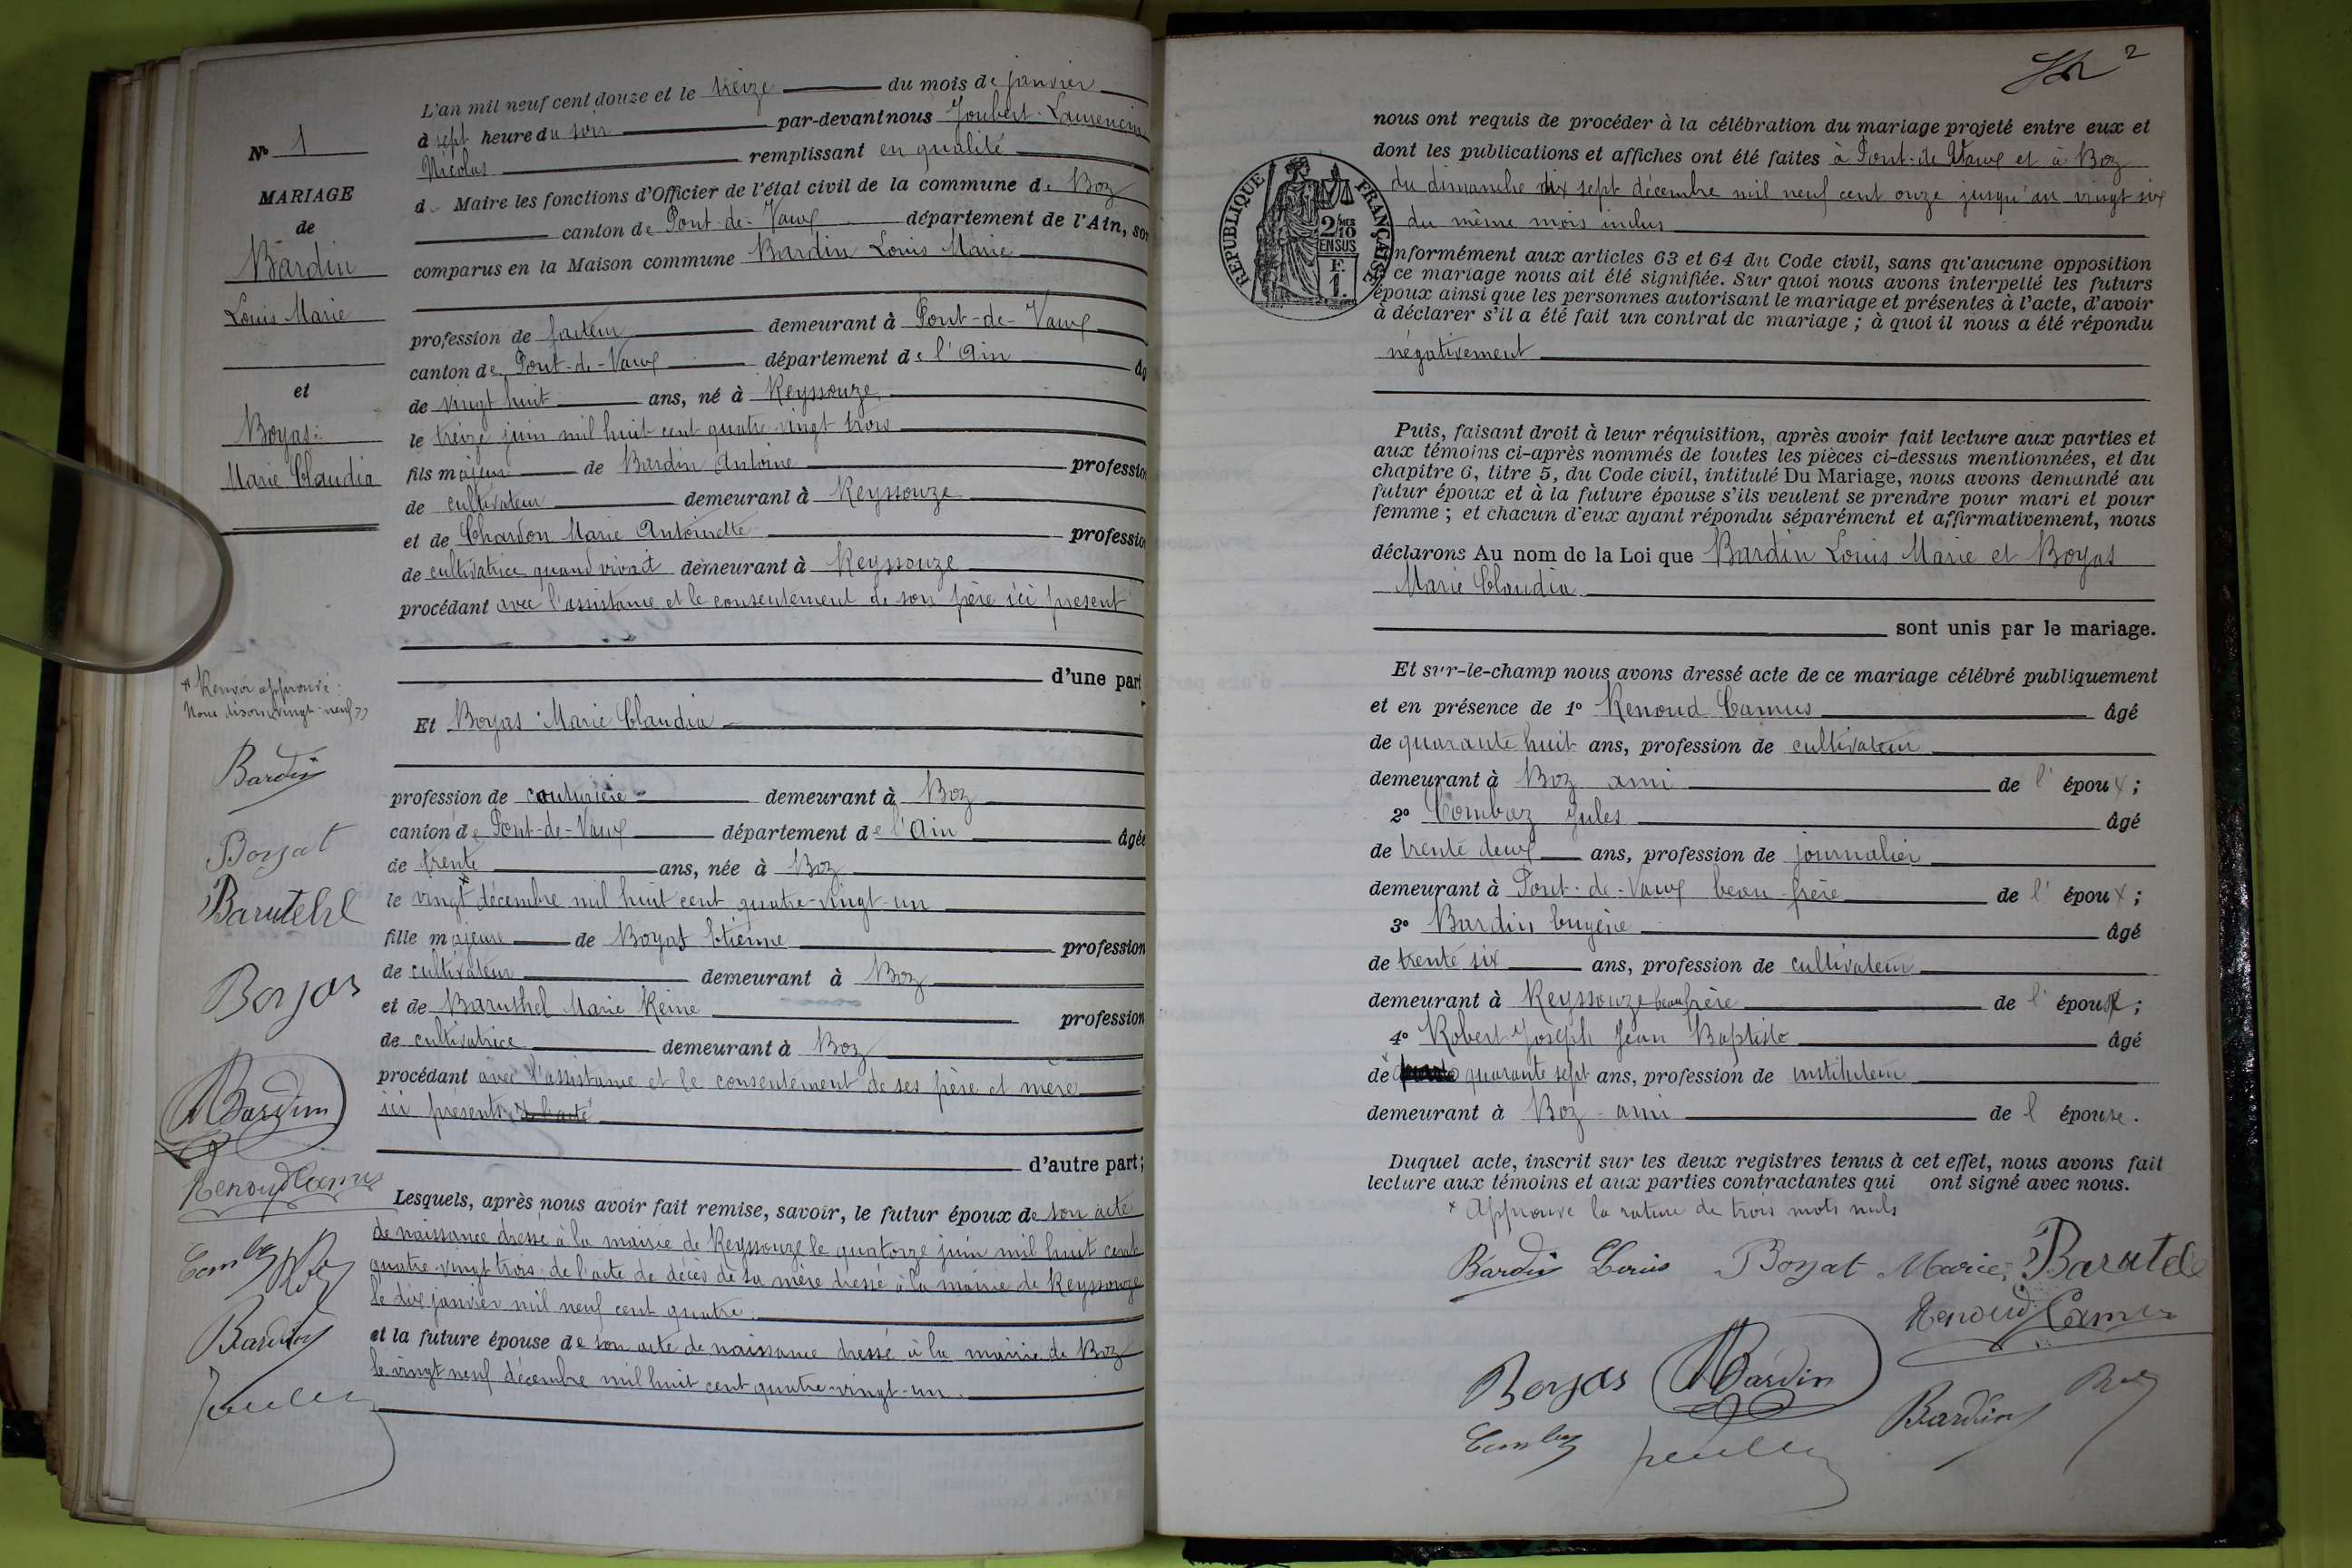 L'an mil neuf cent douze et le treize du mois de janvier
à sept heure du soir par-devant nous Joubert-Laurencin
Nicolas remplissant en qualité
de Maire les fonctions d'Officier de l'état civil de la commune de Boz
canton de Pont-de-Vaux département de l'Ain, son
comparus en la Maison commune Bardin Louis Marie
profession de facteur demeurant à Pont-de-Vaux
canton de Pont-de-Vaux département de l'Ain âg
de vingt huit ans, né à Reyssouze
le treize juin mil huit cent quatre-vingt trois
fils majeur de Bardin Antoine profession
de cultivateur demeurant à Reyssouze
et de Chardon Marie Antoinette profession
de cultivatrice quand vivait demeurant à Reyssouze
procédant avec l'assistance et le consentement de son père ici présent
d'une part
Et Boyas Marie Claudia
profession de couturière demeurant à Boz
canton de Pont-de-Vaux département de l'Ain âgée
de trente ans, née à Boz
le vingt x décembre mil huit cent quatre-vingt-un
fille majeure de Boyat Etienne profession
de cultivateur demeurant à Boz
et de Baruthel Marie Reine profession
de cultivatrice demeurant à Boz
procédant avec l'assistance et le consentement de ses père et mère
ici présents
d'autre part;
Lesquels, après nous avoir fait remise, savoir, le futur époux de son acte
de naissance dressé à la mairie de Reyssouze le quatorze juin mil huit cent
quatre-vingt trois, de l'acte de décès de sa mère dressé à la mairie de Reyssouze
le dix janvier mil neuf cent quatre.
et la future épouse de son acte de naissance dressé à la mairie de Boz
le vingt neuf décembre mil huit cent quatre-vingt-un.
N° 1
MARIAGE
de
Bardin
Louis Marie
et
Boyas
Marie Claudia
x Renvoi approuvé:
Nous disons vingt-neuf
Bardin
Boyat
Barutehl
Boyas
Bardin
Renoud Camus
Combaz
Bardin
2
nous ont requis de procéder à la célébration du mariage projeté entre eux et
dont les publications et affiches ont été faites à Pont-de-Vaux et à Boz
du dimanche dix sept décembre mil neuf cent onze jusqu'au vingt six
du même mois inclus
RÉPUBLIQUE FRANÇAISE
2/10 MES
EN SUS
F.
1.
nformément aux articles 63 et 64 du Code civil, sans qu'aucune opposition
ce mariage nous ait été signifiée. Sur quoi nous avons interpellé les futurs
époux ainsi que les personnes autorisant le mariage et présentes à l'acte, d'avoir
à déclarer s'il a été fait un contrat de mariage ; à quoi il nous a été répondu
négativement
Puis, faisant droit à leur réquisition, après avoir fait lecture aux parties et
aux témoins ci-après nommés de toutes les pièces ci-dessus mentionnées, et du
chapitre 6, titre 5, du Code civil, intitulé Du Mariage, nous avons demandé au
futur époux et à la future épouse s'ils veulent se prendre pour mari et pour
femme ; et chacun d'eux ayant répondu séparément et affirmativement, nous
déclarons Au nom de la Loi que Bardin Louis Marie et Boyas
Marie Claudia
sont unis par le mariage.
Et sur-le-champ nous avons dressé acte de ce mariage célébré publiquement
et en présence de 1° Renoud Camus âgé
de quarante huit ans, profession de cultivateur
demeurant à Boz ami de l'époux;
2° Combaz Jules âgé
de trente deux ans, profession de journalier
demeurant à Pont-de-Vaux beau-frère de l'époux;
3° Bardin Eugène âgé
de trente six ans, profession de cultivateur
demeurant à Reyssouze beau frère de l'épouse;
4° Robert Joseph Jean Baptiste âgé
de quarante sept ans, profession de instituteur
demeurant à Boz - ami de l épouse.
Duquel acte, inscrit sur les deux registres tenus à cet effet, nous avons fait
lecture aux témoins et aux parties contractantes qui ont signé avec nous.
x Approuvé la rature de trois mots nuls
Bardin Louis Boyat Marie Barutel
Renoud Camus
Boyas Bardin
Combaz Bardin